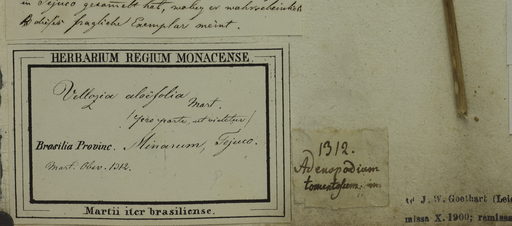 in Tejuco gesammelt hat, wobey er wahrscheinlich
dieses fragliche Exemplar meint.
HERBARIUM REGIUM MONACENSE.
Vellozia aloëfolia Mart.
(pro parte, ut videtur)
Brasilia Provinc. Minarum, Tejuco.
Mart. Obsv. 1312.
Martii iter brasiliense.
1312.
Adenopodium
tomentosum. m
J. W. Goethart (Leid
missa X. 1900; remissa